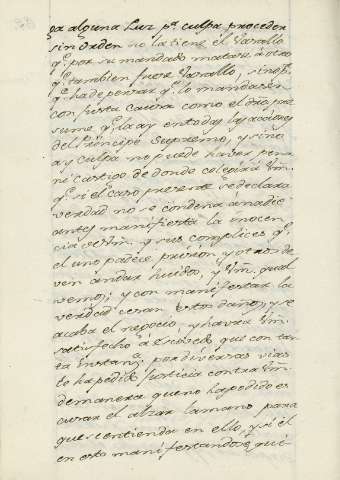 ga alguna Luz pª culpa proceder
sin orden no la tiene el Vasallo
qᵉ por su mandado matase à otro
qᵉ tambien fuese Vasallo, sino pʳ
qᵉ ha de pensar qᵉ lo mandasen
con justa causa como el dro pre
sume qᵉ la ay en todas las acciones
del Principe Supremo, y si no
ay culpa no puede haver pena
ni castigo de donde colegirá Vm.
qᵉ si el caso presente se declara
verdad no se condena à nadie
antes manifiesta la inocen
cia de Vm. y sus complices qᵉ
el uno padece prision, y otros de
ven andar huidos, y Vm. qual
vemos; y con manifestar la
verdad cesan estos daños, y se
acaba el negocio, y havra Vm.
satisfecho à Escovedo que con tan
ta instanª por diversas vias
le ha pedido justicia contra Vm.
de manera que no ha podido es
cusar el alzar la mano para
que se entienda en ello, y si él
en esto manifestando qᵉ